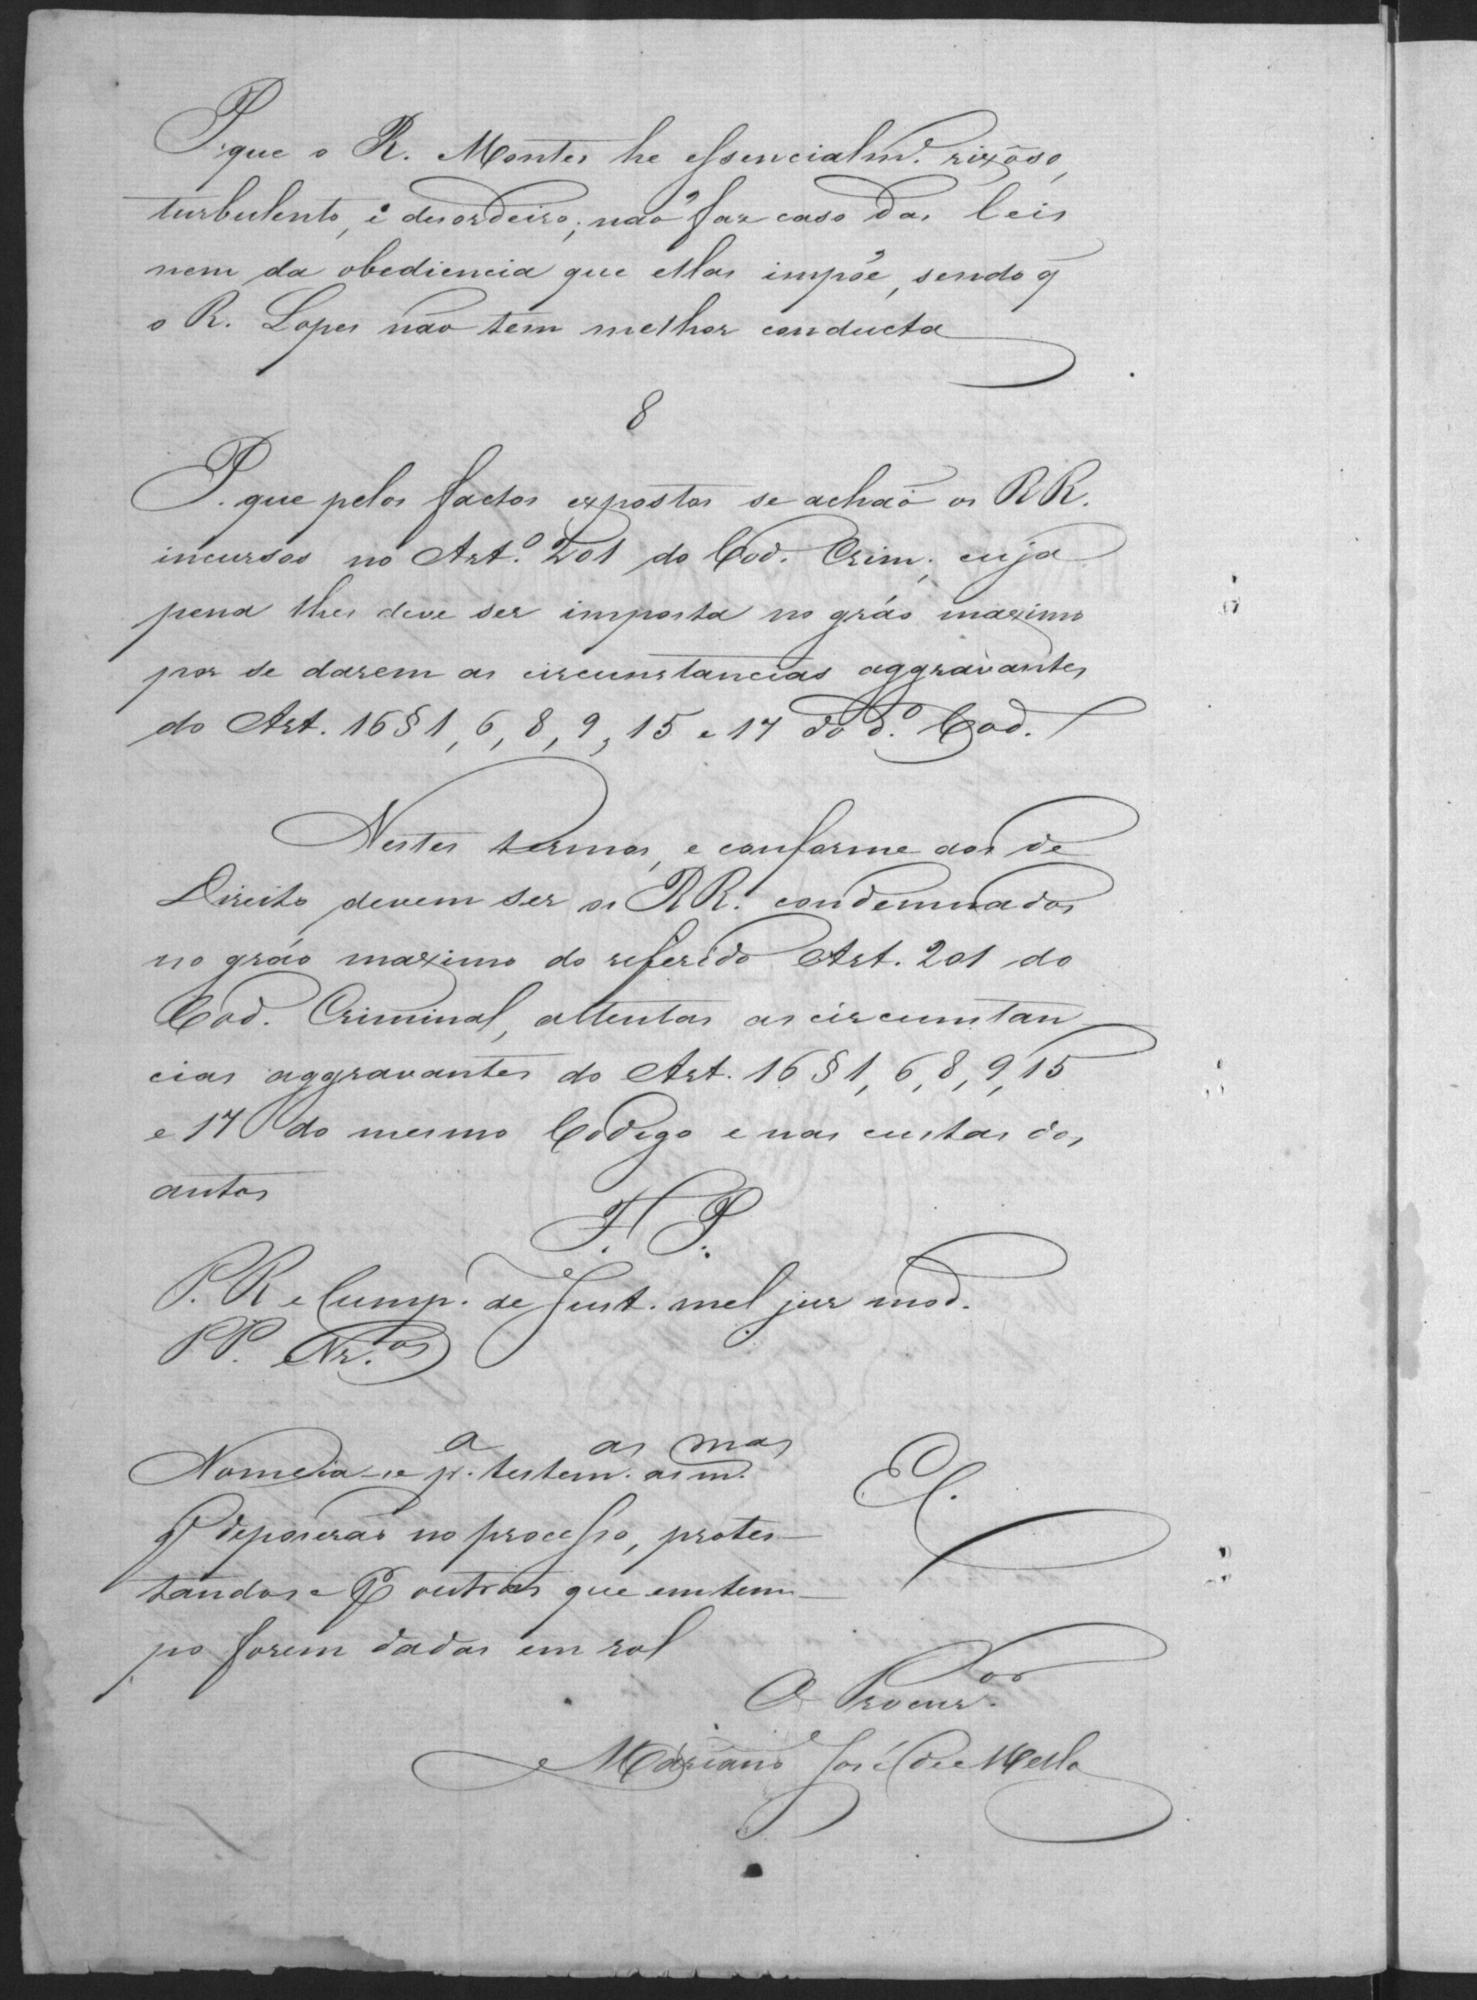 P. que o R. Montes he essencialm.e rixoso,
turbulento, e desordeiro; não faz caso das leis
nem da obediencia que ellas impõe, sendo q̃
o R. Lopes não tem melhor conducta
8
P. que pelos factos expostos se achaõ os RR.
incursos no Art.º 201 do Cod. Crim. cuja
pena lhes deve ser imposta no gráo maximo
por se darem as circunstancias aggravantes
do Art. 16 § 1, 6, 8, 9, 15 e 17 do d.º Cod.
Nestes termos, e conforme aos de
Direito devem ser os RR. condemnados
no gráo maximo do referido Art. 201 do
Cod. Criminal, attentas as circumstan
cias aggravantes do Art. 16 § 1, 6, 8, 9, 15
e 17 do mesmo Codigo e nas custas dos
autos
F. P.
P. R. e Cump. de Just. mel jur mod.
PP. N.os
Nomeia-se p.a testem.as as m.mas
q̃ deposerão no processo, protes-
tandose P outras que em tem-
po forem dadas em rol
E C.
O Procur.or
Mariano José de Mello